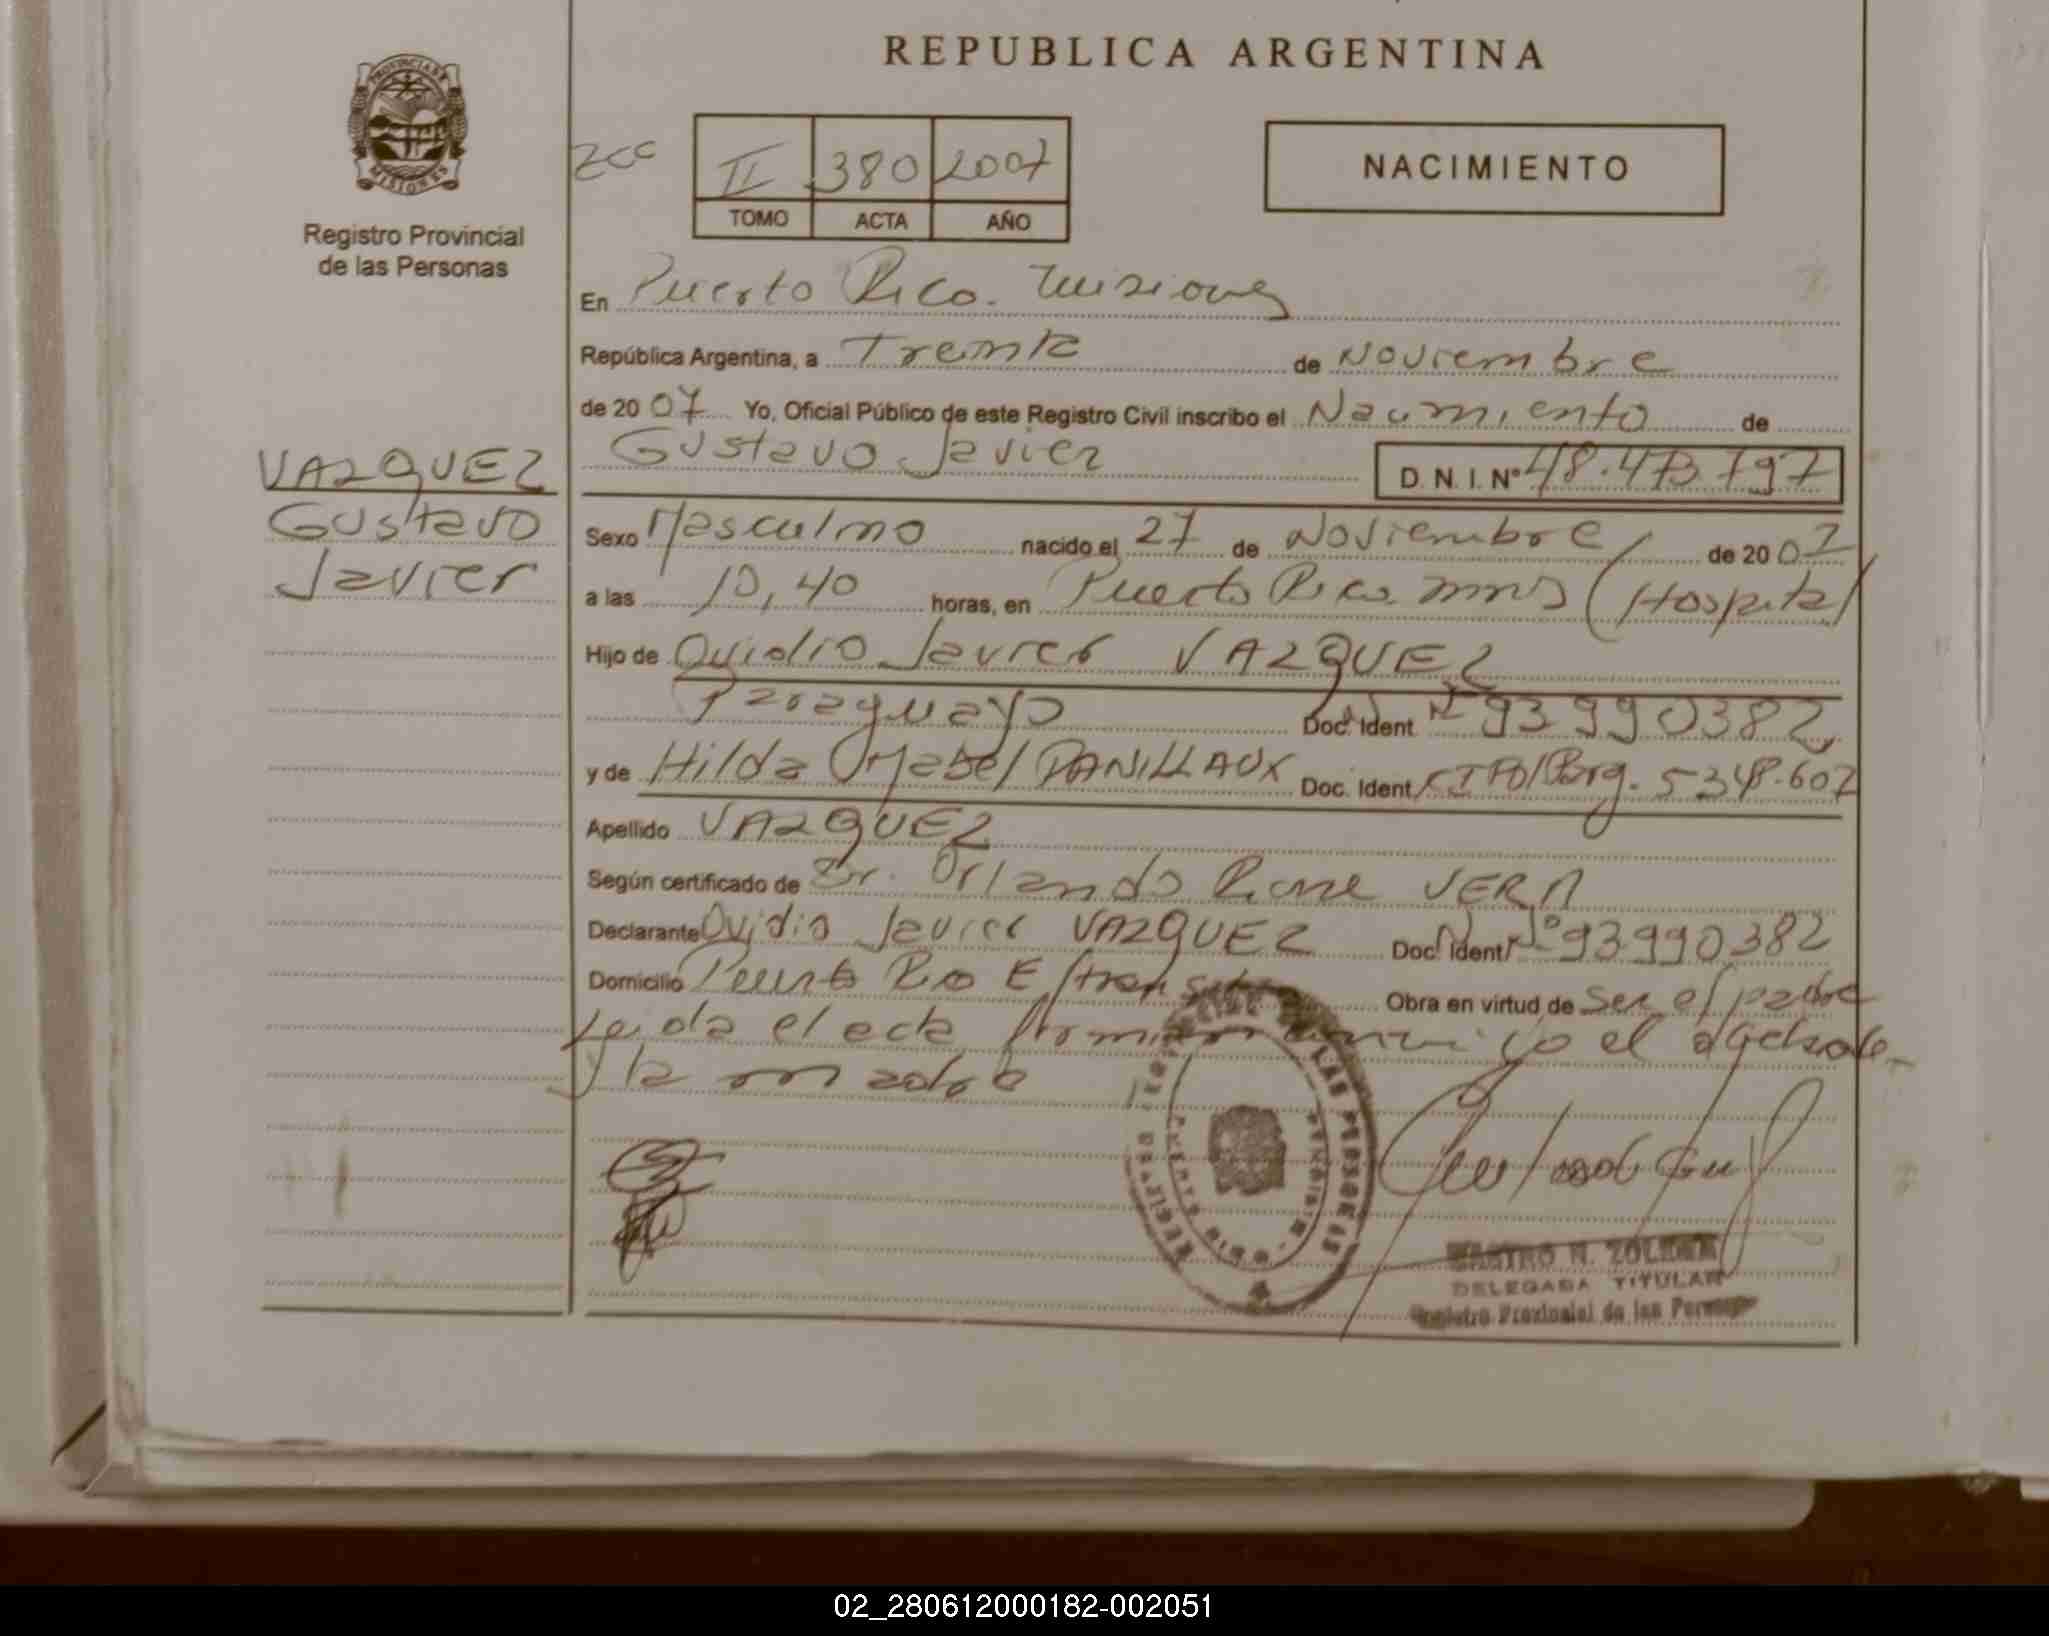 REPUBLICA ARGENTINA
PROVINCIA DE
MISIONES
Registro Provincial
de las Personas
II 380 2007
TOMO ACTA AÑO
NACIMIENTO
En Puerto Rico. Misiones
República Argentina, a Treinta de Noviembre
de 2007 Yo, Oficial Público de este Registro Civil inscribo el Nacimiento de
Gustavo Javier D. N. I. Nº 48.473.797
VAZQUEZ
Gustavo
Javier
Sexo Masculino nacido el 27 de Noviembre de 2007
a las 10,40 horas, en Puerto Rico. Mnes (Hospital)
Hijo de Ovidio Javier VAZQUEZ
Paraguayo Doc. Ident Nº 93990382
y de Hilda Mabel Doc. Ident 5348.607
Apellido VAZQUEZ
Según certificado de Dr. Orlando Rene VERA
Declarante Ovidio Javier VAZQUEZ Doc. Ident Nº 93990382
Domicilio Puerto Rico E/transito Obra en virtud de ser el padre
Leida el acta firman conmigo el
y la madre
REGISTRO PROVINCIAL DE LAS PERSONAS
PUERTO RICO MISIONES
DELEGADA TITULAR
Registro Provincial de las Personas
02_280612000182-002051